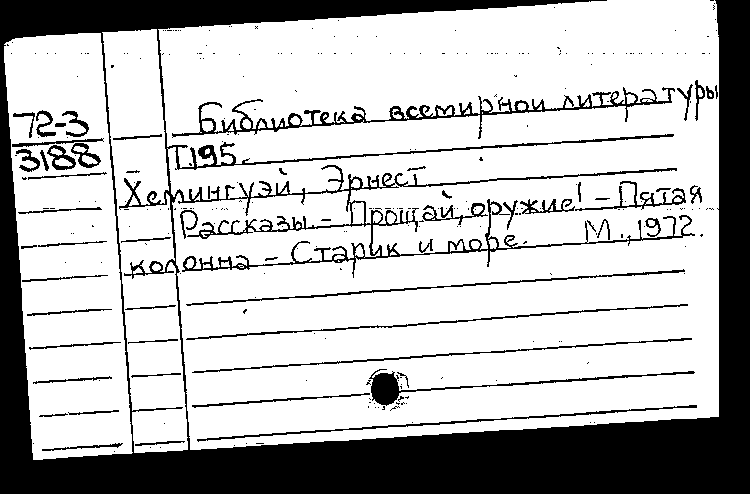 Библиотека всемирнои литературы
72-3
3188
Т.195.
Хемингуэй, Эрнест
Рассказы. – Прощай, оружие! – Пятая
колонна – Старик и море. М., 1972.